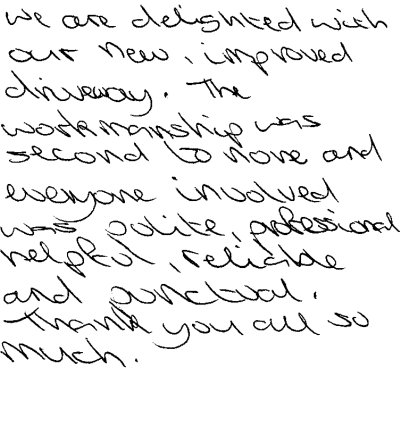 we are delighted with
our new, improved
driveway. The
workmanship was
second to none and
everyone involved
was polite, professional
helpful, reliable
and punctual.
Thank you all so
much.